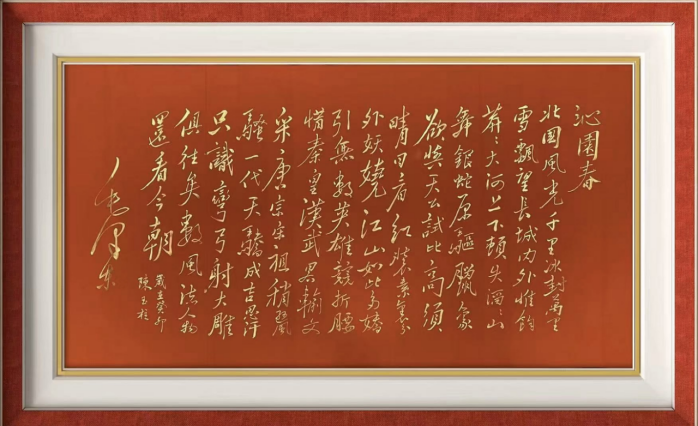 沁園春
北国風光千里冰封萬里
雪飄望長城内外惟餘
莽々大河上下頓失滔々山
舞銀蛇原驅臘象
欲與天公試比高須
晴日看紅裝素裹分
外妖嬈江山如此多嬌
引無數英雄競折腰
惜秦皇漢武畧輸文
采唐宗宋祖稍遜風
騷一代天驕成吉思汗
只識彎弓射大雕
俱往矣數風流人物
還看今朝
歲在癸卯
毛澤东